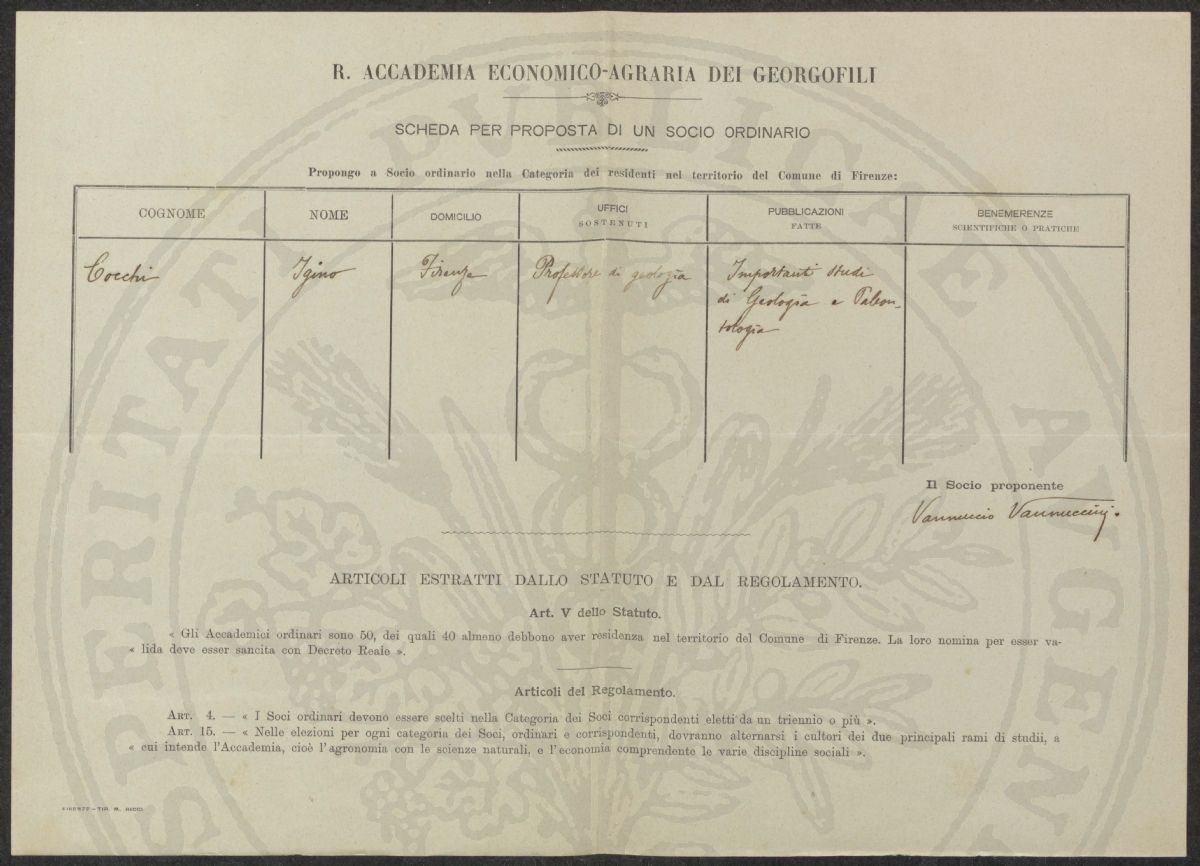 R. ACCADEMIA ECONOMICO-AGRARIA DEI GEORGOFILI
SCHEDA PER PROPOSTA DI UN SOCIO ORDINARIO
Propongo a Socio ordinario nella Categoria dei residenti nel territorio del Comune di Firenze:
COGNOME
NOME
DOMICILIO
UFFICI
SOSTENUTI
PUBBLICAZIONI
FATTE
BENEMERENZE
SCIENTIFICHE O PRATICHE
Cocchi
Igino
Firenze
Professore di geologia
Importanti studi
di Geologia e Paleon-
tologia
Il Socio proponente
Vannuccio Vannuccini.
ARTICOLI ESTRATTI DALLO STATUTO E DAL REGOLAMENTO.
Art. V dello Statuto.
« Gli Accademici ordinari sono 50, dei quali 40 almeno debbono aver residenza nel territorio del Comune di Firenze. La loro nomina per esser va-
« lida deve esser sancita con Decreto Reale ».
Articoli del Regolamento.
ART. 4. — « I Soci ordinari devono essere scelti nella Categoria dei Soci corrispondenti eletti da un triennio o più ».
ART. 15. — « Nelle elezioni per ogni categoria dei Soci, ordinari e corrispondenti, dovranno alternarsi i cultori dei due principali rami di studii, a
« cui intende l'Accademia, cioè l'agronomia con le scienze naturali, e l'economia comprendente le varie discipline sociali ».
FIRENZE - TIP. M. RICCI
SPERITATI PVBLICAE AVGEN